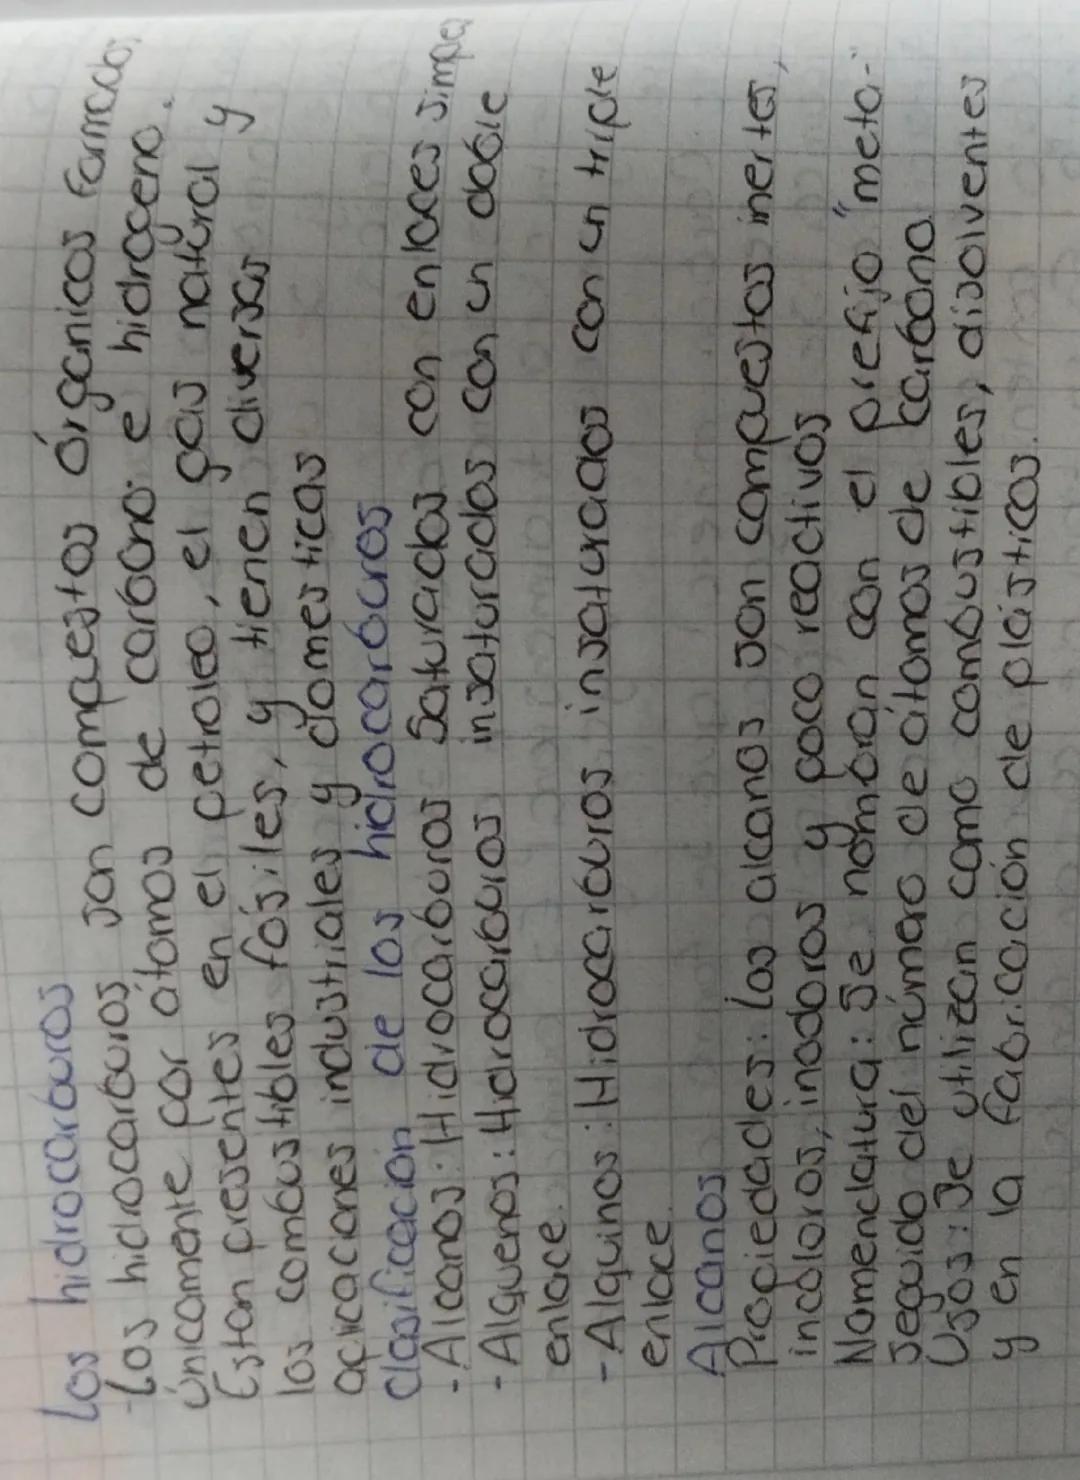 Los hidrocarburos
- Los hidrocarburos son compuestos órganicos formados
únicamente por átomos de carbono e hidrogeno.
Estan presentes en el petroleo, el gas natural y
los combustibles fósiles, y tienen diversas
aplicaciones industriales y domesticas
clasificacion de los hidrocarburos
- Alcanos: Hidrocarburos Saturados con enlaces simples
- Alquenos: Hidrocarburos insaturados con un doble
enlace.
- Alquinos: Hidrocarburos insaturados con un triple
enlace.
Alcanos
Propiedades: Los alcanos son compuestos inertes,
incoloros, inodoros y poco reactivos
Nomenclatura: Se nombran con el prefijo "meta-"
seguido del número de átomos de carbono.
Usos: Se utilizan como combustibles, disolventes
y en la fabricación de plásticos.